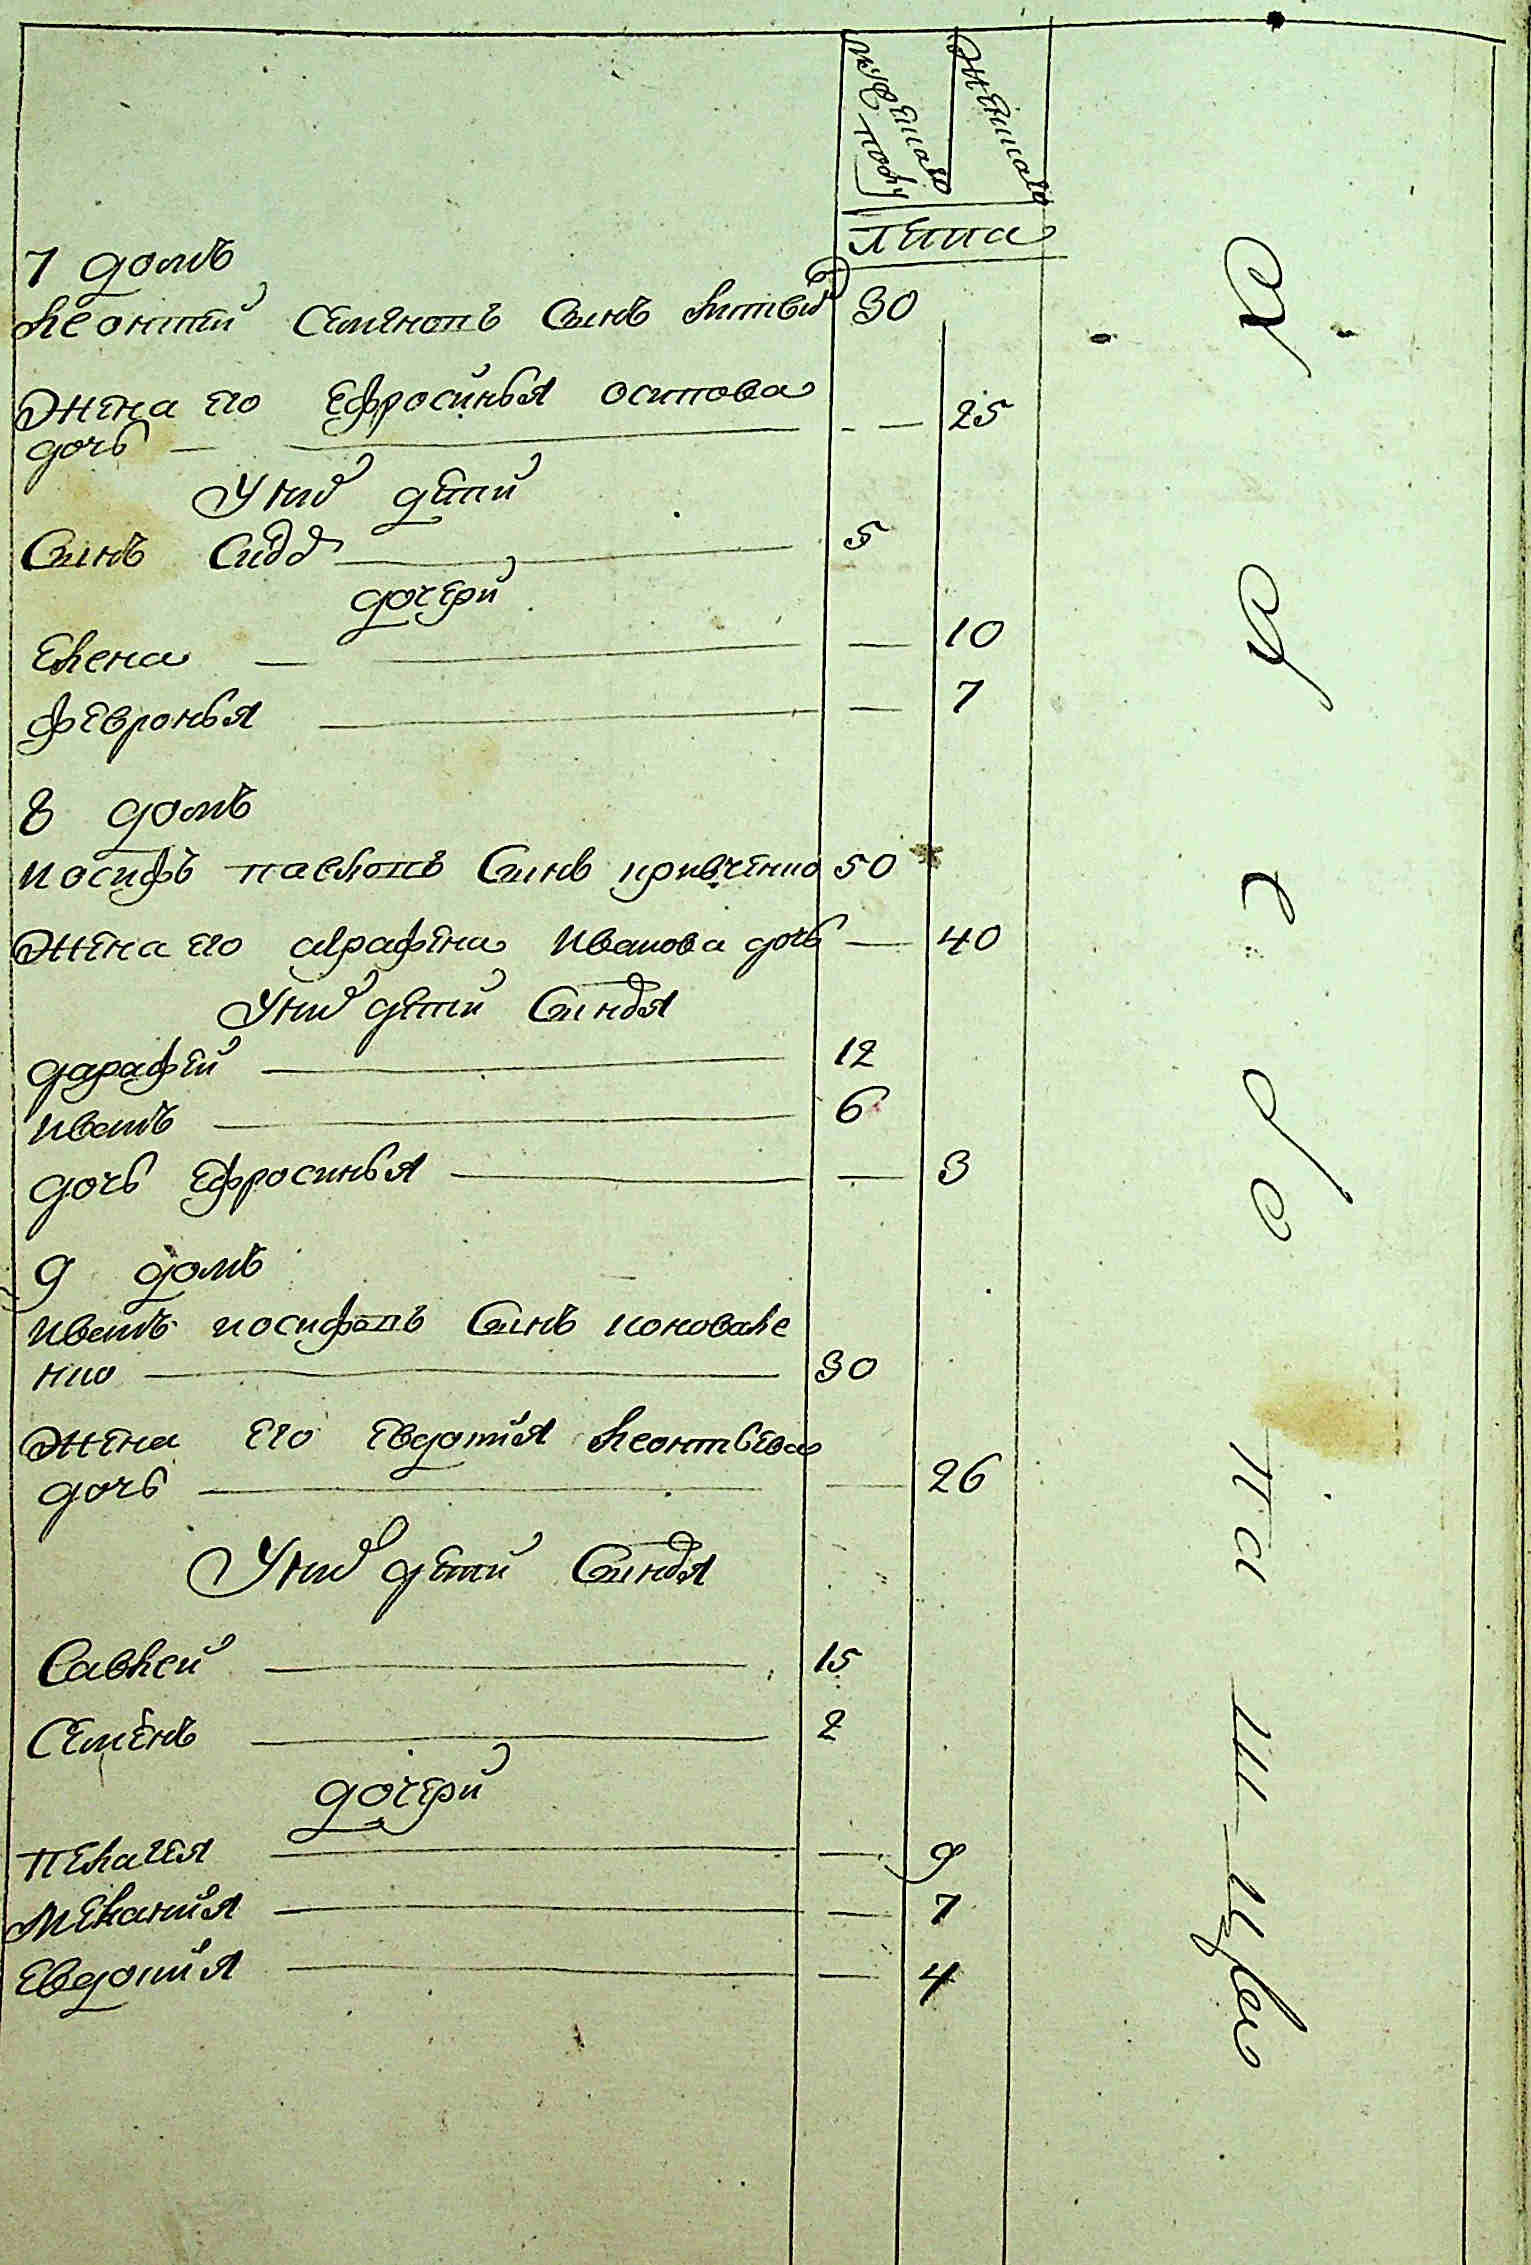 мужеска полу
женска
лета
7 домъ
Леонтий Семяновъ сынъ Литвин 30
Жена его Ефросинья Осипова
дочь — — 25
У них дети
Сынъ Сидор 5
дочери
Елена — 10
Февронья — 7
8 домъ
Иосифъ Павловъ сынъ кривченко 50
Жена его Аграфена Иванова дочь — 40
У них дети сыновья
дарафей 12
Иванъ 6
дочь Ефросинья — 3
9 домъ
Иванъ Иосифовъ сынъ коновале
нко 30
Жена его Евдотия Леонтьева
дочь — 26
У них дети сыновья
Савелей 15
Семенъ 2
дочери
Пелагея — 9
Мелания — 7
Евдотия — 4